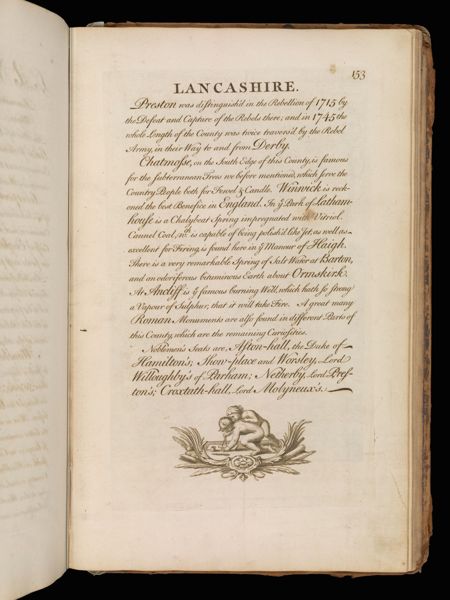 153
LANCASHIRE.
Preston was distinguish'd in the Rebellion of 1715 by
the Defeat and Capture of the Rebels there; and in 1745 the
whole Length of the County was twice travers'd by the Rebel
Army, in their Way to and from Derby.
Chatmosse, on the South Edge of this County, is famous
for the Subterranean Trees we before mentioned, which serve the
Country People both for Fewel & Candle. Winwick is reck-
oned the best Benefice in England. In ye Park of Latham-
house is a Chalybeat Spring impregnated with Vitriol.
Cannel Coal, wch. is capable of being polish'd like Jet, as well as
excellent for Firing, is found here in ye Manour of Haigh.
There is a very remarkable Spring of Salt Water at Barton,
and an odoriferous bituminous Earth about Ormskirk.
At Ancliff is ye famous burning Well, which hath so strong
a Vapour of Sulphur, that it will take Fire. A great many
Roman Monuments are also found in different Parts of
this County, which are the remaining Curiosities.
Noblemen's Seats are, Aston-hall, the Duke of
Hamilton's; Show-place and Worsley, Lord
Willoughby's of Parham; Netherby, Lord Pres-
ton's; Croxtath-hall, Lord Molyneux's.